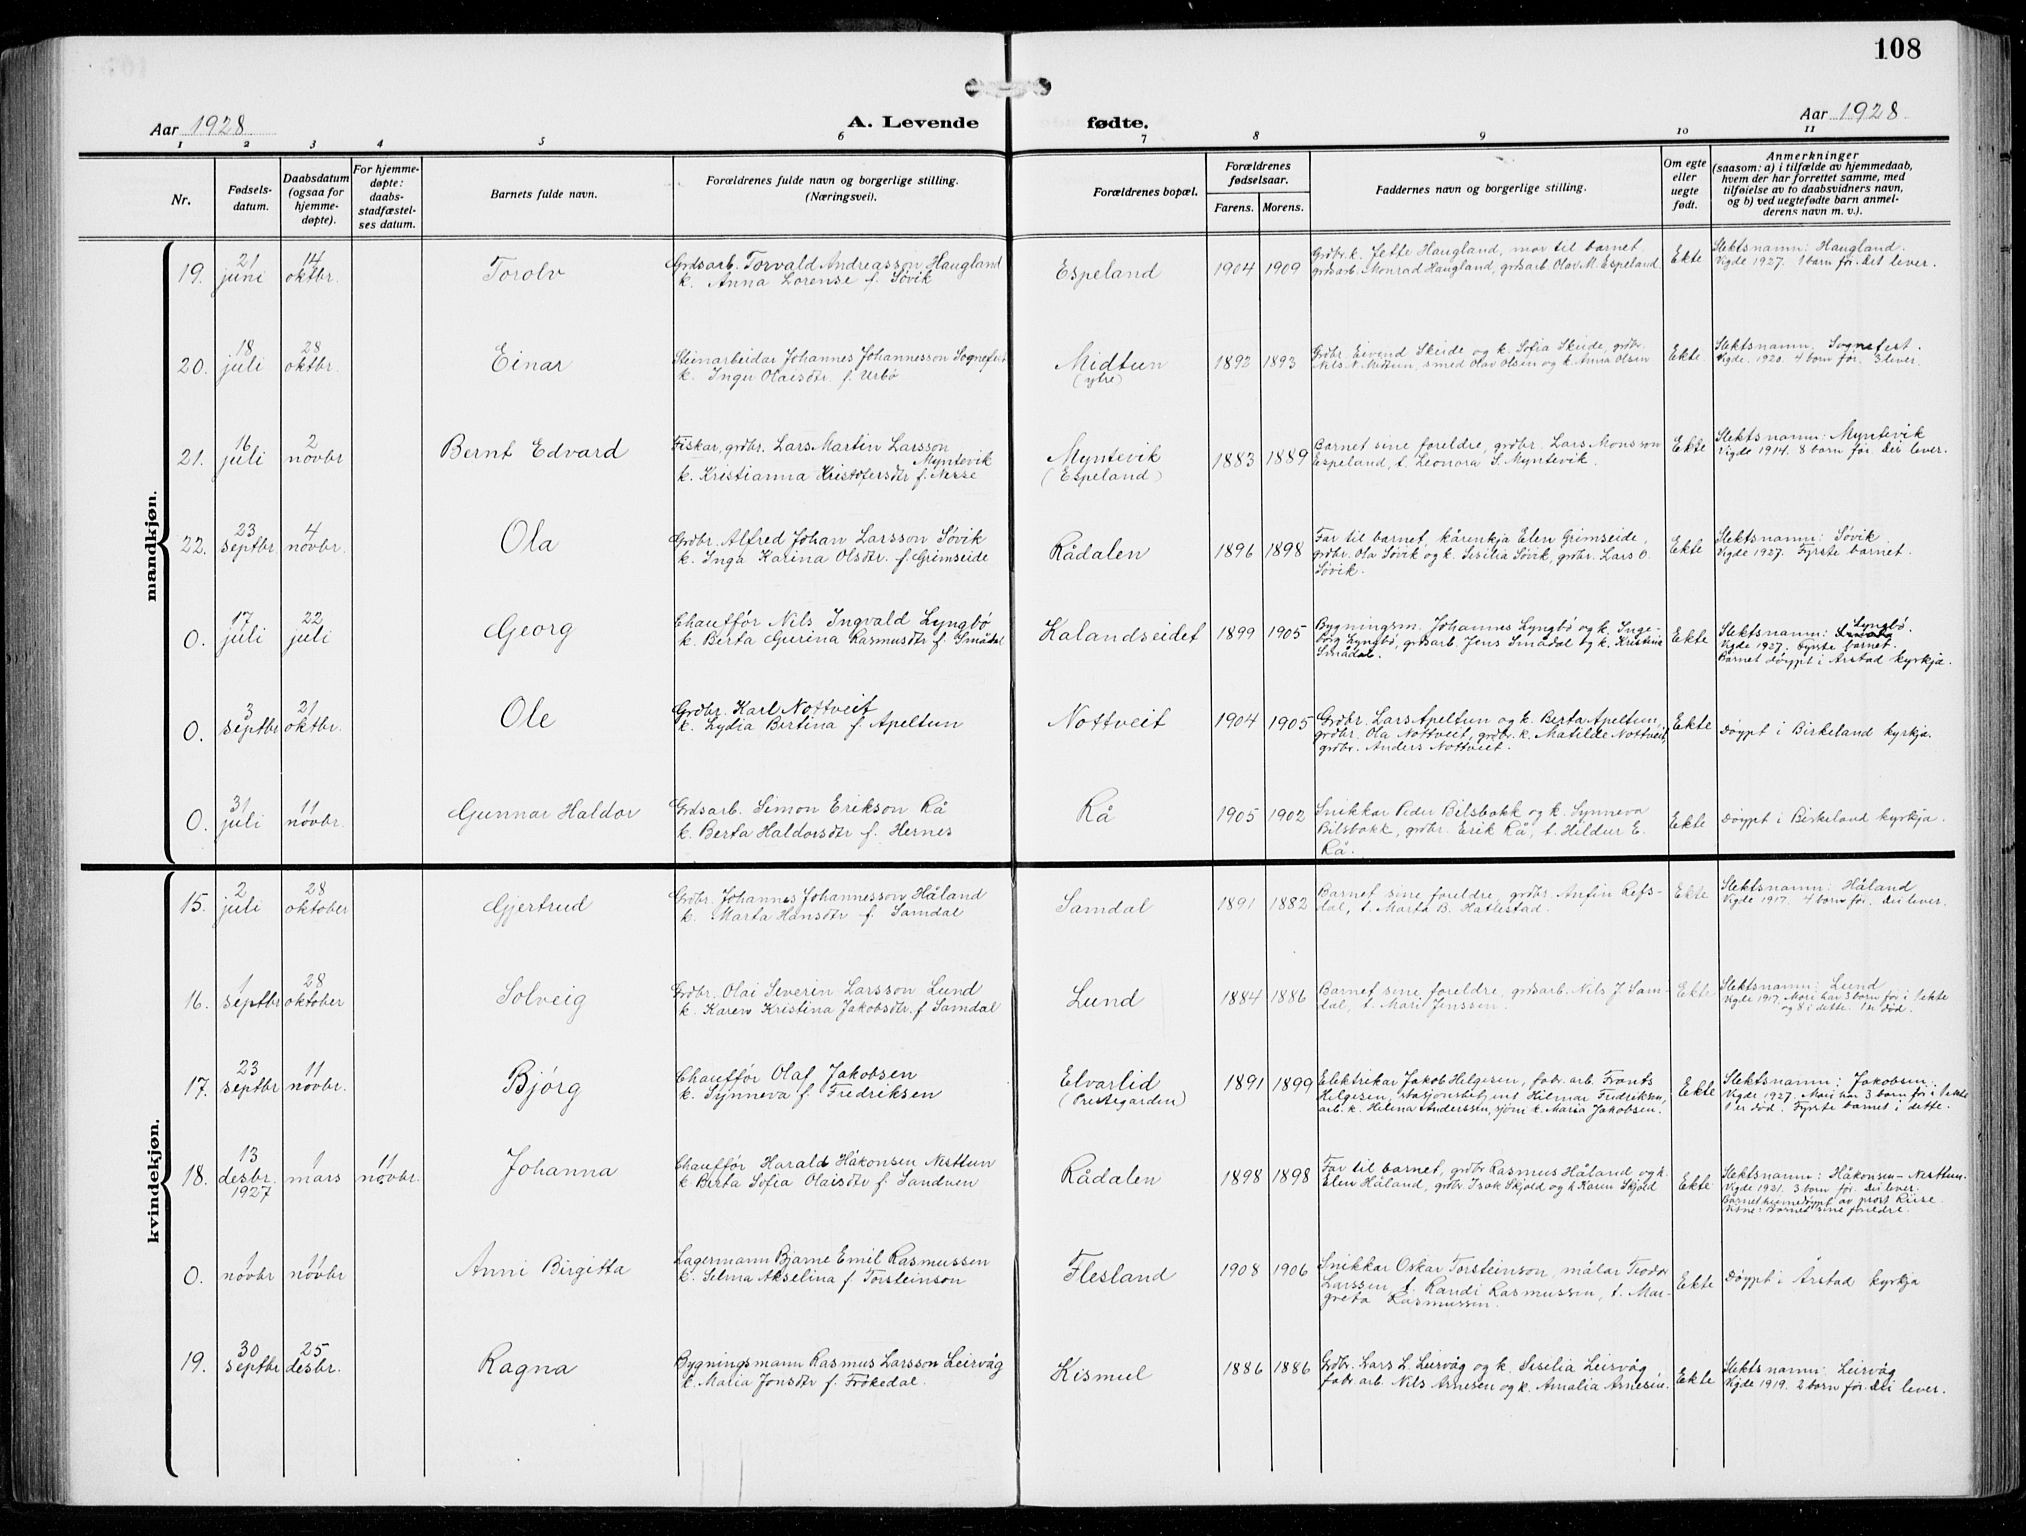 108
Aar 1928
A. Levende fødte.
Aar 1928
1 2 3 4 5 6 7 8 9 10 11
Nr.
Fødsels-
datum.
Daabsdatum
(ogsaa for
hjemme-
døpte).
For hjemme-
døpte:
daabs-
stadfæstel-
ses datum.
Barnets fulde navn.
Forældrenes fulde navn og borgerlige stilling.
(Næringsvei).
Forældrenes bopæl.
Forældrenes
fødselsaar.
Farens. Morens.
Faddernes navn og borgerlige stilling.
Om egte
eller
uegte
født.
Anmerkninger
(saasom: a) i tilfælde av hjemmedaab,
hvem der har forrettet samme, med
tilføielse av to daabsvidners navn,
og b) ved uegtefødte barn anmel-
derens navn m. v.).
mandkjøn.
19. 21 juni 14 oktbr. Torolv
Grdsarb. Torvald Andreasson Haugland
k. Anna Lorense f. Søvik
Espeland 1904 1909
Grdbr.k. Jette Haugland, mor til barnet,
grdsarb. Monrad Haugland, grdsarb. Olav M. Espeland.
Ekte
Slektsnamn: Haugland.
Vigde 1927. 1 born før. Det lever.
20. 18 juli 28 oktbr. Einar
Steinarbeidar Johannes Johannesson Sognefest
k. Inger Olaisdtr. f. Urbø
Midtun
(ytre)
1892 1893
Grdbr. Eivend Skeide og k. Sofia Skeide, grdbr.
Nils N. Midtun, smed Olav Olsen og k. Anna Olsen
Ekte
Slektsnamn: Sognefest.
Vigde. 1920. 4 born før. 3 lever.
21. 16 juli 2 novbr Bernt Edvard
Fiskar, grdbr. Lars Martin Larsson
Myntevik
k. Kristianna Kristofersdtr f. Nesse
Myntevik
(Espeland)
1883 1889
Barnet sine foreldre, grdbr. Lars Monsson
Espeland, t. Leonora S. Myntevik.
Ekte
Slektsnamn: Myntevik
Vigde 1914. 8 born før. Dei lever.
22. 23 septbr. 4 novbr. Ola
Grdbr. Alfred Johan Larsson Søvik
k. Inga Karina Olsdtr. f. Grimseide
Rådalen 1896 1898
Far til barnet, kårenkja Elen Grimseide,
grdbr. Ola Søvik og k. Sesilia Søvik, grdbr. Lars O.
Søvik.
Ekte
Slektsnamn: Søvik
Vigde 1927. Fyrste barnet.
0. 17 juli 22 juli Georg
Chauffør Nils Ingvald Lyngbø
k. Berta Gurina Rasmusdtr f. Smådal
Kalandseidet 1899 1905
Bygningsm. Johannes Lyngbø og k. Inge-
borg Lyngbø, grdsarb. Jens Smådal og k. Kristine
Smådal.
Ekte
Slektsnamn: Lyngbø.
Vigde 1927. Fyrste barnet.
Barnet døypt i Årstad kyrkja.
0. 3 septbr 21 oktbr. Ole
Grdbr. Karl Nottveit
k. Lydia Bertina f. Apeltun
Nottveit 1904 1905
Grdbr. Lars Apeltun og k. Berta Apeltun,
grdbr. Ola Nottveit, grdbr. k. Matilde Nottveit,
grdbr. Anders Nottveit.
Ekte
Døypt i Birkeland kyrkja.
0. 31 juli 11 novbr. Gunnar Haldor
Grdsarb. Simon Erikson Rå
k. Berta Haldorsdtr f. Hernes
Rå 1905 1902
Snikkar Peder Bilsbakk og k. Synneva
Bilsbakk, grdbr. Erik Rå, t. Hildur E.
Rå.
Ekte
Døypt i Birkeland kyrkja.
kvindekjøn.
15. 2 juli 28 oktober Gjertrud
Grdbr. Johannes Johannesson Håland
k. Marta Hansdtr f. Samdal
Samdal 1891 1882
Barnet sine foreldre, grdbr Anfin Refs-
dal, t. Marta B. Hatlestad.
Ekte
Slektsnamn: Håland
Vigde 1917. 4 born før. Dei lever.
16. 1 septbr 28 oktober Solveig
Grdbr. Olai Severin Larsson Lund
k. Karen Kristina Jakobsdtr. f Samdal
Lund 1884 1886
Barnet sine foreldre, grdsarb. Nils J. Sam-
dal, t. Mari Jenssen.
Ekte
Slektsnamn: Lund
Vigde 1917. Mori har 3 born før i 1 ekte
og 8 i dette. 1 er død.
17. 23 septbr 11 novbr. Bjørg
Chauffør Olaf Jakobsen
k. Synneva f. Fredriksen
Elvarlid
(Prestegarden)
1891 1899
Elektrikar Jakob Helgesen, fabr.arb. Frants
Helgesen, stasjonsbetjent Hilmar Fredriksen,
arb. k. Helena Anderssen, sjøm k. Maria Jakobsen.
Ekte
Slektsnamn: Jakobsen.
Vigde 1927. Mori har 3 born før i 1 ekte
1 er død. Fyrste barnet i dette.
18. 13 desbr. 1927 1 mars 11 novbr. Johanna
Chauffør Harald Håkonsen Nesttun
k. Berta Sofia Olaisdtr f. Sandven
Rådalen 1898 1898
Far til barnet, grdbr Rasmus Håland og k.
Elen Håland, grdbr. Isak Skjold og k Karen Skjold
Ekte
Slektsnamn: Håkonsen-Nesttun.
Vigde 1921. 3 born før. Dei lever.
Barnet heimedøypt av prost Riise.
Vitne: Barnet sine foreldre.
0. 1 novbr 11 novbr Anni Birgitta
Lagermann Bjarne Emil Rasmussen
k. Selma Akselina f Torsteinson
Flesland 1908 1906
Snikkar Oskar Torsteinson, målar Teodor
Larssen t. Randi Rasmussen, t. Mar-
greta Rasmussen.
Ekte
Døypt i Årstad kyrkja
19. 30 septbr 25 desbr. Ragna
Bygningsmann Rasmus Larsson Leirvåg
k. Maria Jonsdtr f. Frøkedal.
Kismul 1886 1886
Grdbr. Lars L. Leirvåg og k. Sesilia Leirvåg
fabr. arb. Nils Arnesen og k. Amalia Arnesen.
Ekte
Slektsnamn: Leirvåg
Vigde 1919. 2 born før. Dei lever.